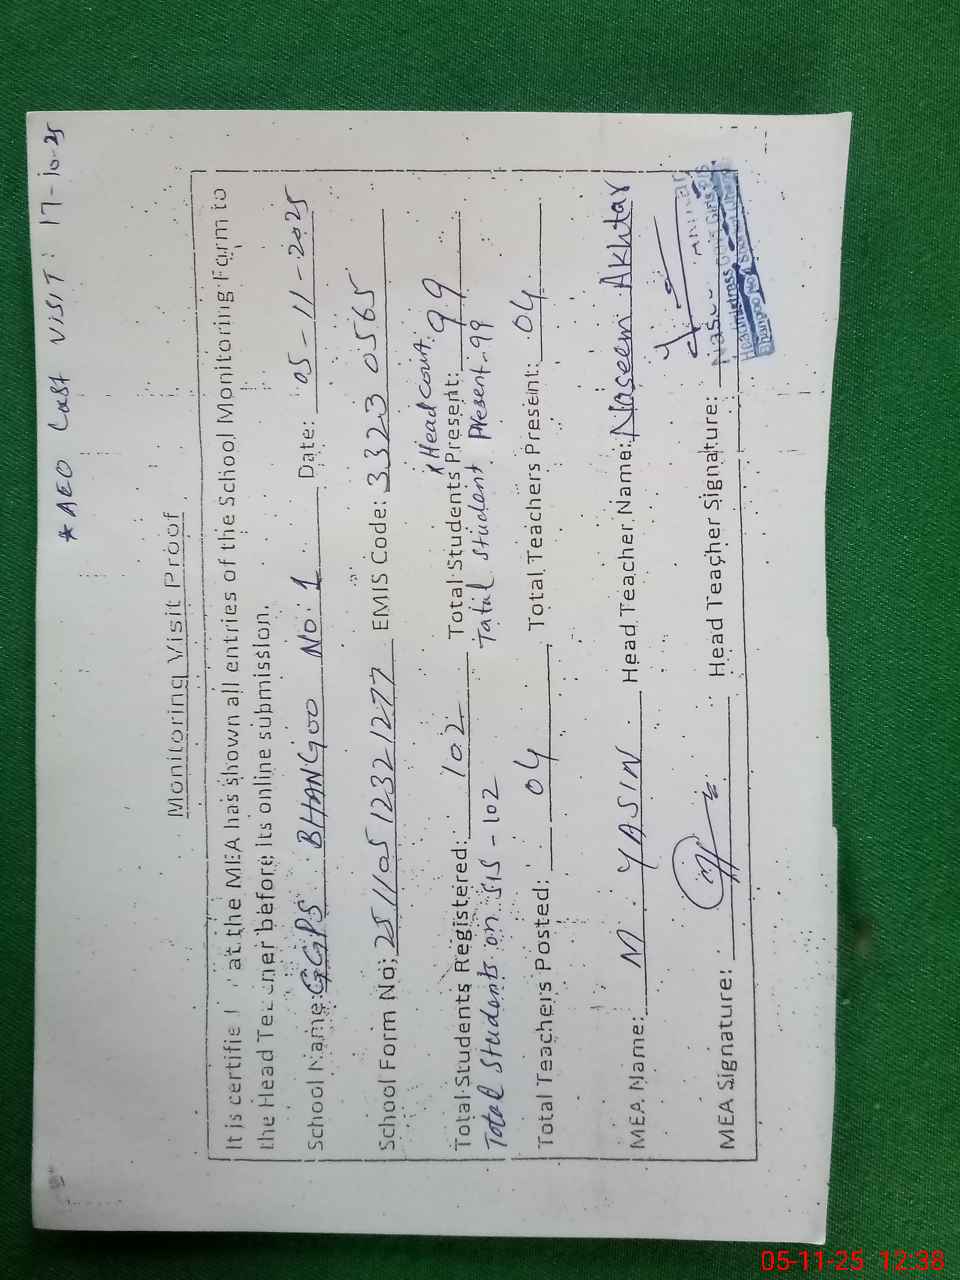 * AEO Last VISIT: 17-10-25
Monitoring Visit Proof
It is certifie at the MEA has shown all entries of the School Monitoring Form to
the Head Teacher before its online submission.
School Name: GGPS BHANGOO No. 1 Date: 05-11-2025
School Form No; 2511051232 1277 EMIS Code: 3323 0565
* Head Count.
Total Students Registered: 102 Total Students Present: 99
Total Students on SIS - 102 Total Student Present - 99
Total Teachers Posted: 04 Total Teachers Present: 04
MEA Name: M. YASIN Head Teacher Name: Naseem Akhtar
MEA Signature: Head Teacher Signature:
05-11-25 12:38